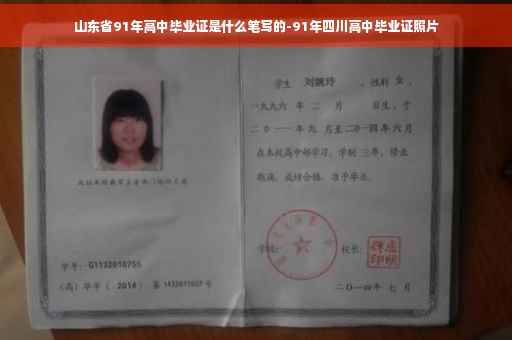 山东省91年高中毕业证是什么笔写的-91年四川高中毕业证照片
学生 刘婉玲 ，性别 女 ，
一九九六 年 二 月 日生，于
二〇一一 年 九 月至 二〇一四 年 六 月
在本校高中部学习，学制 三 年，修业
期满，成绩合格，准予毕业。
学校： 校长：
学号： G1132010755
（高）毕字（ 2014 ）第 1432011027 号
二〇一四年 七 月